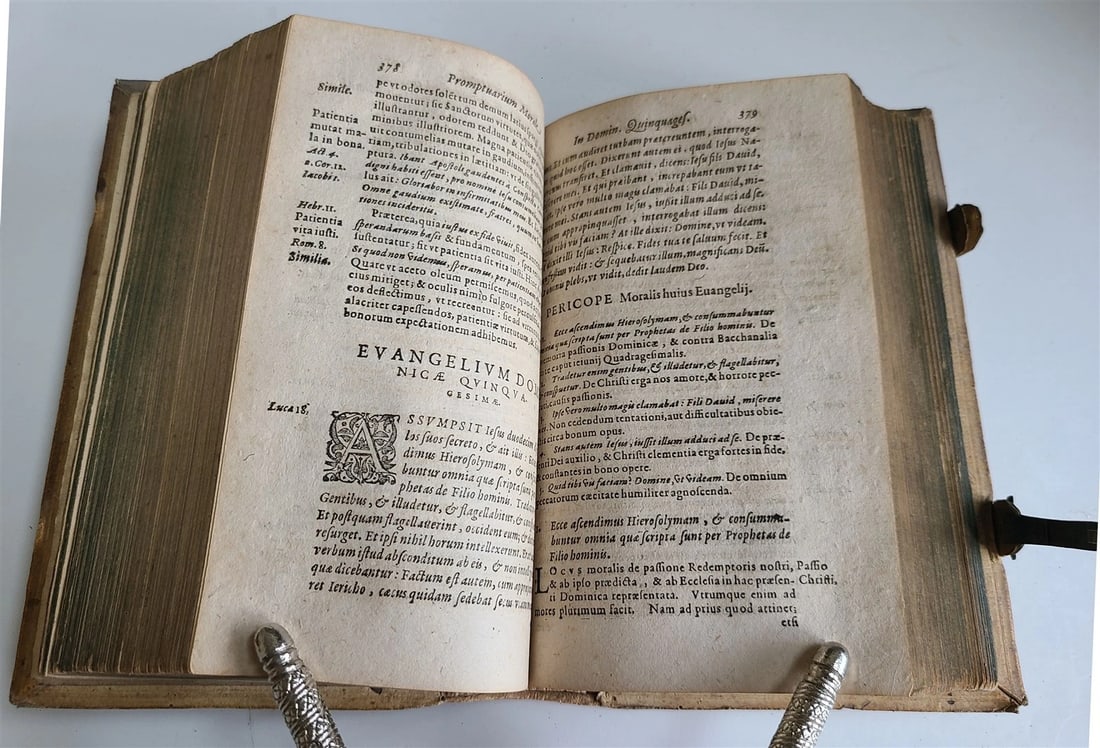 378
Promptuarium Morale
Simile.
pe vt odores
mouentur; sic Sanctorum virtutes,
illustrantur, odorem reddunt,
Patientia
minibus illustriorem. Magna
mutat ma-
ui contumelias mutare in gaudium,
la in bona.
tiam, tribulationes in lætitiam:
Act. 4.
ptura. Ibant Apostoli gaudentes à
2. Cor. 12.
digni habiti essent, pro nomine Iesu
Iacobi 1.
lus ait: Gloriabor in infirmitatibus meis
Omne gaudium existimate, fratres,
tiones incideritis.
Hebr. 11.
Præterea, quia iustus ex fide viuit, fides
Patientia
sperandarum basis & fundamentum
vita iusti.
sustentatur; fit vt patientia sit vita iusti.
Rom. 8.
Si quod non videmus, speramus, per patientiam
Similia.
Quare vt aceto oleum permiscemus, quod
eius mitiget; & oculis nimio fulgore
eos deflectimus, vt recreentur: sic ad
alacriter capessendos, patientiæ virtutem, &
bonorum expectationem adhibemus.
EVANGELIVM DOMI
NICÆ QVINQVA-
GESIMÆ.
Luca 18.
ASSVMPSIT Iesus duodecim
los suos secreto, & ait illis:
dimus Hierosolymam, &
buntur omnia quæ scripta sunt per
phetas de Filio hominis.
Gentibus, & illudetur, & flagellabitur, &
Et postquam flagellauerint, occident eum; &
resurget. Et ipsi nihil horum intellexerunt.
verbum istud absconditum ab eis, & non
quæ dicebantur: Factum est autem, cum
ret Iericho, cæcus quidam sedebat secus viam
In Domin. Quinquages. 379
Et cum audiret turbam prætereuntem, interroga-
quid hoc esset. Dixerunt autem ei, quod Iesus Na-
transiret. Et clamauit, dicens: Iesu fili Dauid,
mei. Et qui præibant, increpabant eum vt ta-
Ipse vero multo magis clamabat: Fili Dauid, mi-
mei. Stans autem Iesus, iussit illum adduci ad se.
appropinquasset, interrogabit illum dicens:
tibi vis faciam? At ille dixit: Domine, vt videam.
dixit illi Iesus: Respice. Fides tua te saluum fecit. Et
vidit: & sequebatur illum, magnificans Deũ.
plebs, vt vidit, dedit laudem Deo.
PERICOPE Moralis huius Euangelij.
Ecce ascendimus Hierosolymam, & consummabuntur
omnia quæ scripta sunt per Prophetas de Filio hominis. De
passionis Dominicæ, & contra Bacchanalia
caput ieiunij Quadragesimalis.
Tradetur enim gentibus, & illudetur, & flagellabitur,
conspuetur. De Christi erga nos amore, & horrore pec-
causis passionis.
Ipse vero multo magis clamabat: Fili Dauid, miserere
Non cedendum tentationi, aut difficultatibus obie-
circa bonum opus.
Stans autem Iesus, iussit illum adduci ad se. De præ-
Dei auxilio, & Christi clementia erga fortes in fide,
constantes in bono opere.
Quid tibi vis faciam? Domine, vt videam. De omnium
peccatorum cæcitate humiliter agnoscenda.
Ecce ascendimus Hierosolymam, & consumma-
buntur omnia quæ scripta sunt per Prophetas de
Filio hominis.
LOCVS moralis de passione Redemptoris nostri, Passio
& ab ipso prædicta, & ab Ecclesia in hac præsen- Christi.
ti Dominica repræsentata. Vtrumque enim ad
mores plurimum facit. Nam ad prius quod attinet;
etsi